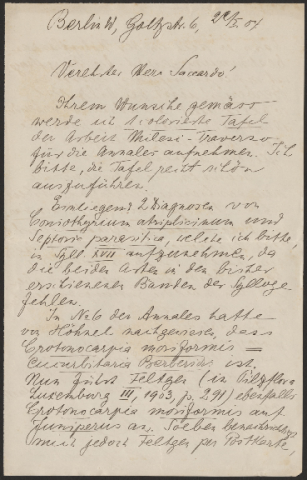 Berlin W, Goltzstr. 6, 22/X. 04
Verehrter Herr Saccardo!
Ihrem Wunsche gemäss
werde ich 1 colorierte Tafel
der Arbeit Milesi-Traverso
für die Annales aufnehmen. Ich
bitte, die Tafel recht schön
auszuführen.
Einliegend 2 Diagnosen von
Coniothyrium atriplicinum und
Septoria parasitica, welche ich bitte,
in Syll. XVII aufzunehmen, da
die beiden Arten in den bisher
erschienenen Bänden der Sylloge
fehlen.
In No 6 der Annales hatte
von Höhnel nachgewiesen, dass
Crotonocarpia moriformis =
Cucurbitaria Berberidis ist.
Nun führt Feltgen (in Pilzflora
Luxemburg III, 1903, p. 291) ebenfalls
Crotonocarpia moriformis auf
Juniperus an. Soeben benachrichtigt
mich jedoch Feltgen per Postkarte,